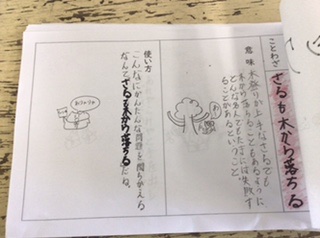 ことわざ
さるも木から落ちる
意味
木登りが上手なさるでも
木から落ちることもあるように
どんな名人でもたまには失敗す
ることがあるということ
使い方
こんなにかんたんな問題を間ちがえる
なんてさるも木から落ちるだね。